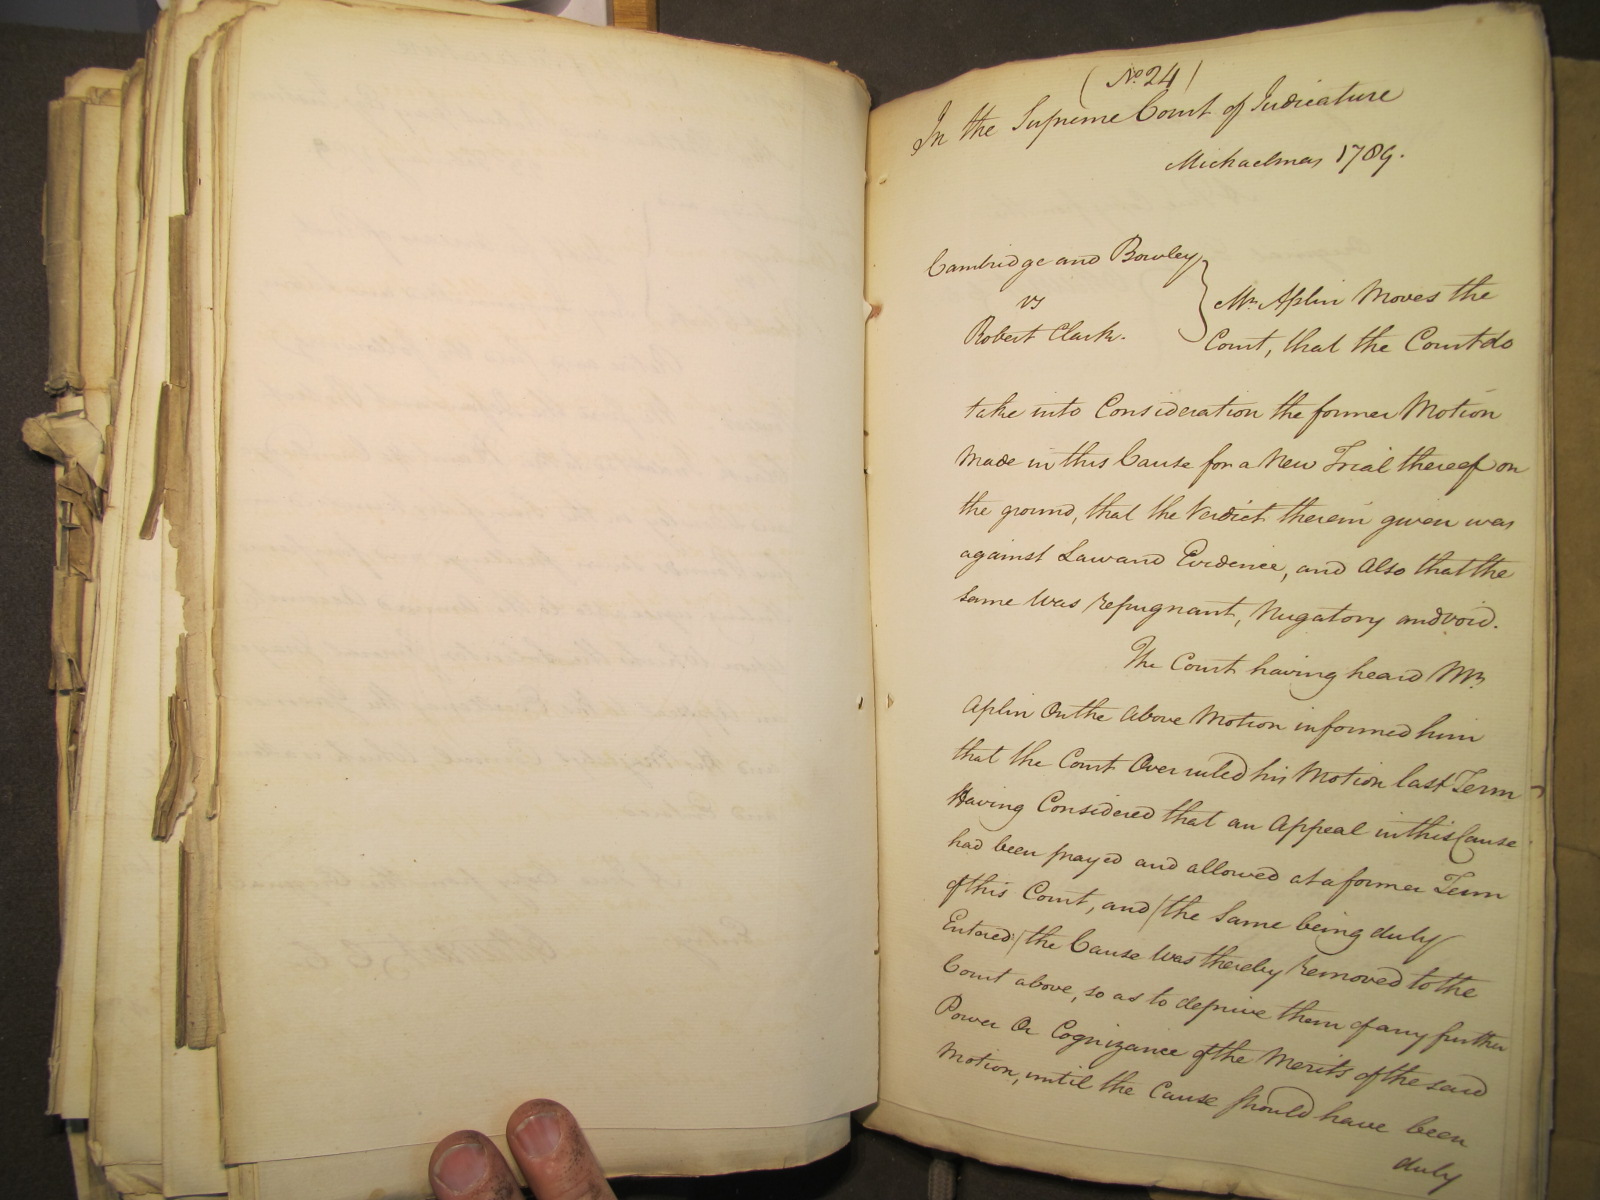 (No. 24)
In the Supreme Court of Judicature
Michaelmas 1789.
Cambridge and Bowley
vs
Robert Clark.
Mr. Aplin Moves the
Court, that the Court do
take into Consideration the former Motion
Made in this Cause for a New Trial thereof on
the ground, that the Verdict therein given was
against Law and Evidence, and Also that the
same Was repugnant, Nugatory and void.
The Court having heard Mr.
Aplin On the Above Motion informed him
that the Court Over ruled his Motion last Term
Having Considered that an Appeal in this Cause
had been prayed and allowed at a former Term
of this Court, and (the Same being duly
Entered) the Cause Was thereby removed to the
Court above, so as to deprive them of any further
Power Or Cognizance of the Merits of the said
Motion, until the Cause should have been
duly